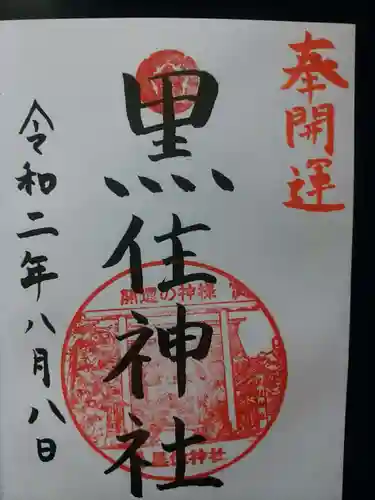 奉開運
黒住神社
令和二年八月八日
開運の神様
黒住神社